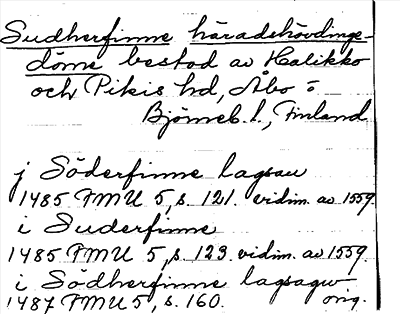 Sudherfinne häradshövdinge-
döme bestod av Halikko
och Pikis hd, Åbo =
Björneb. l., Finland
j Söderfinne lagsau
1485 FMU 5, s. 121. vidim. av 1559.
i Suderfinne
1485 FMU 5, s. 123. vidim. av 1559.
i Södherfinne lagsagu
1487 FMU 5, s. 160. orig.